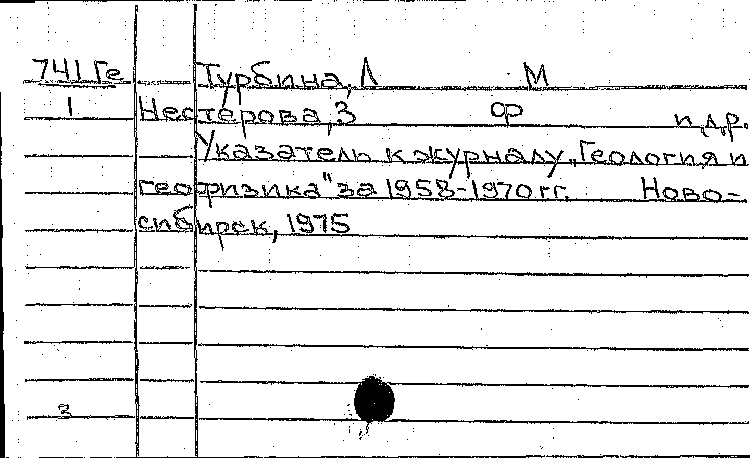 741 Ге Турбина, Л М
1 Нестерова, З Ф и др.
Указатель к журналу „Геология и
геофизика" за 1958-1970 гг. Ново-
сибирск, 1975
2